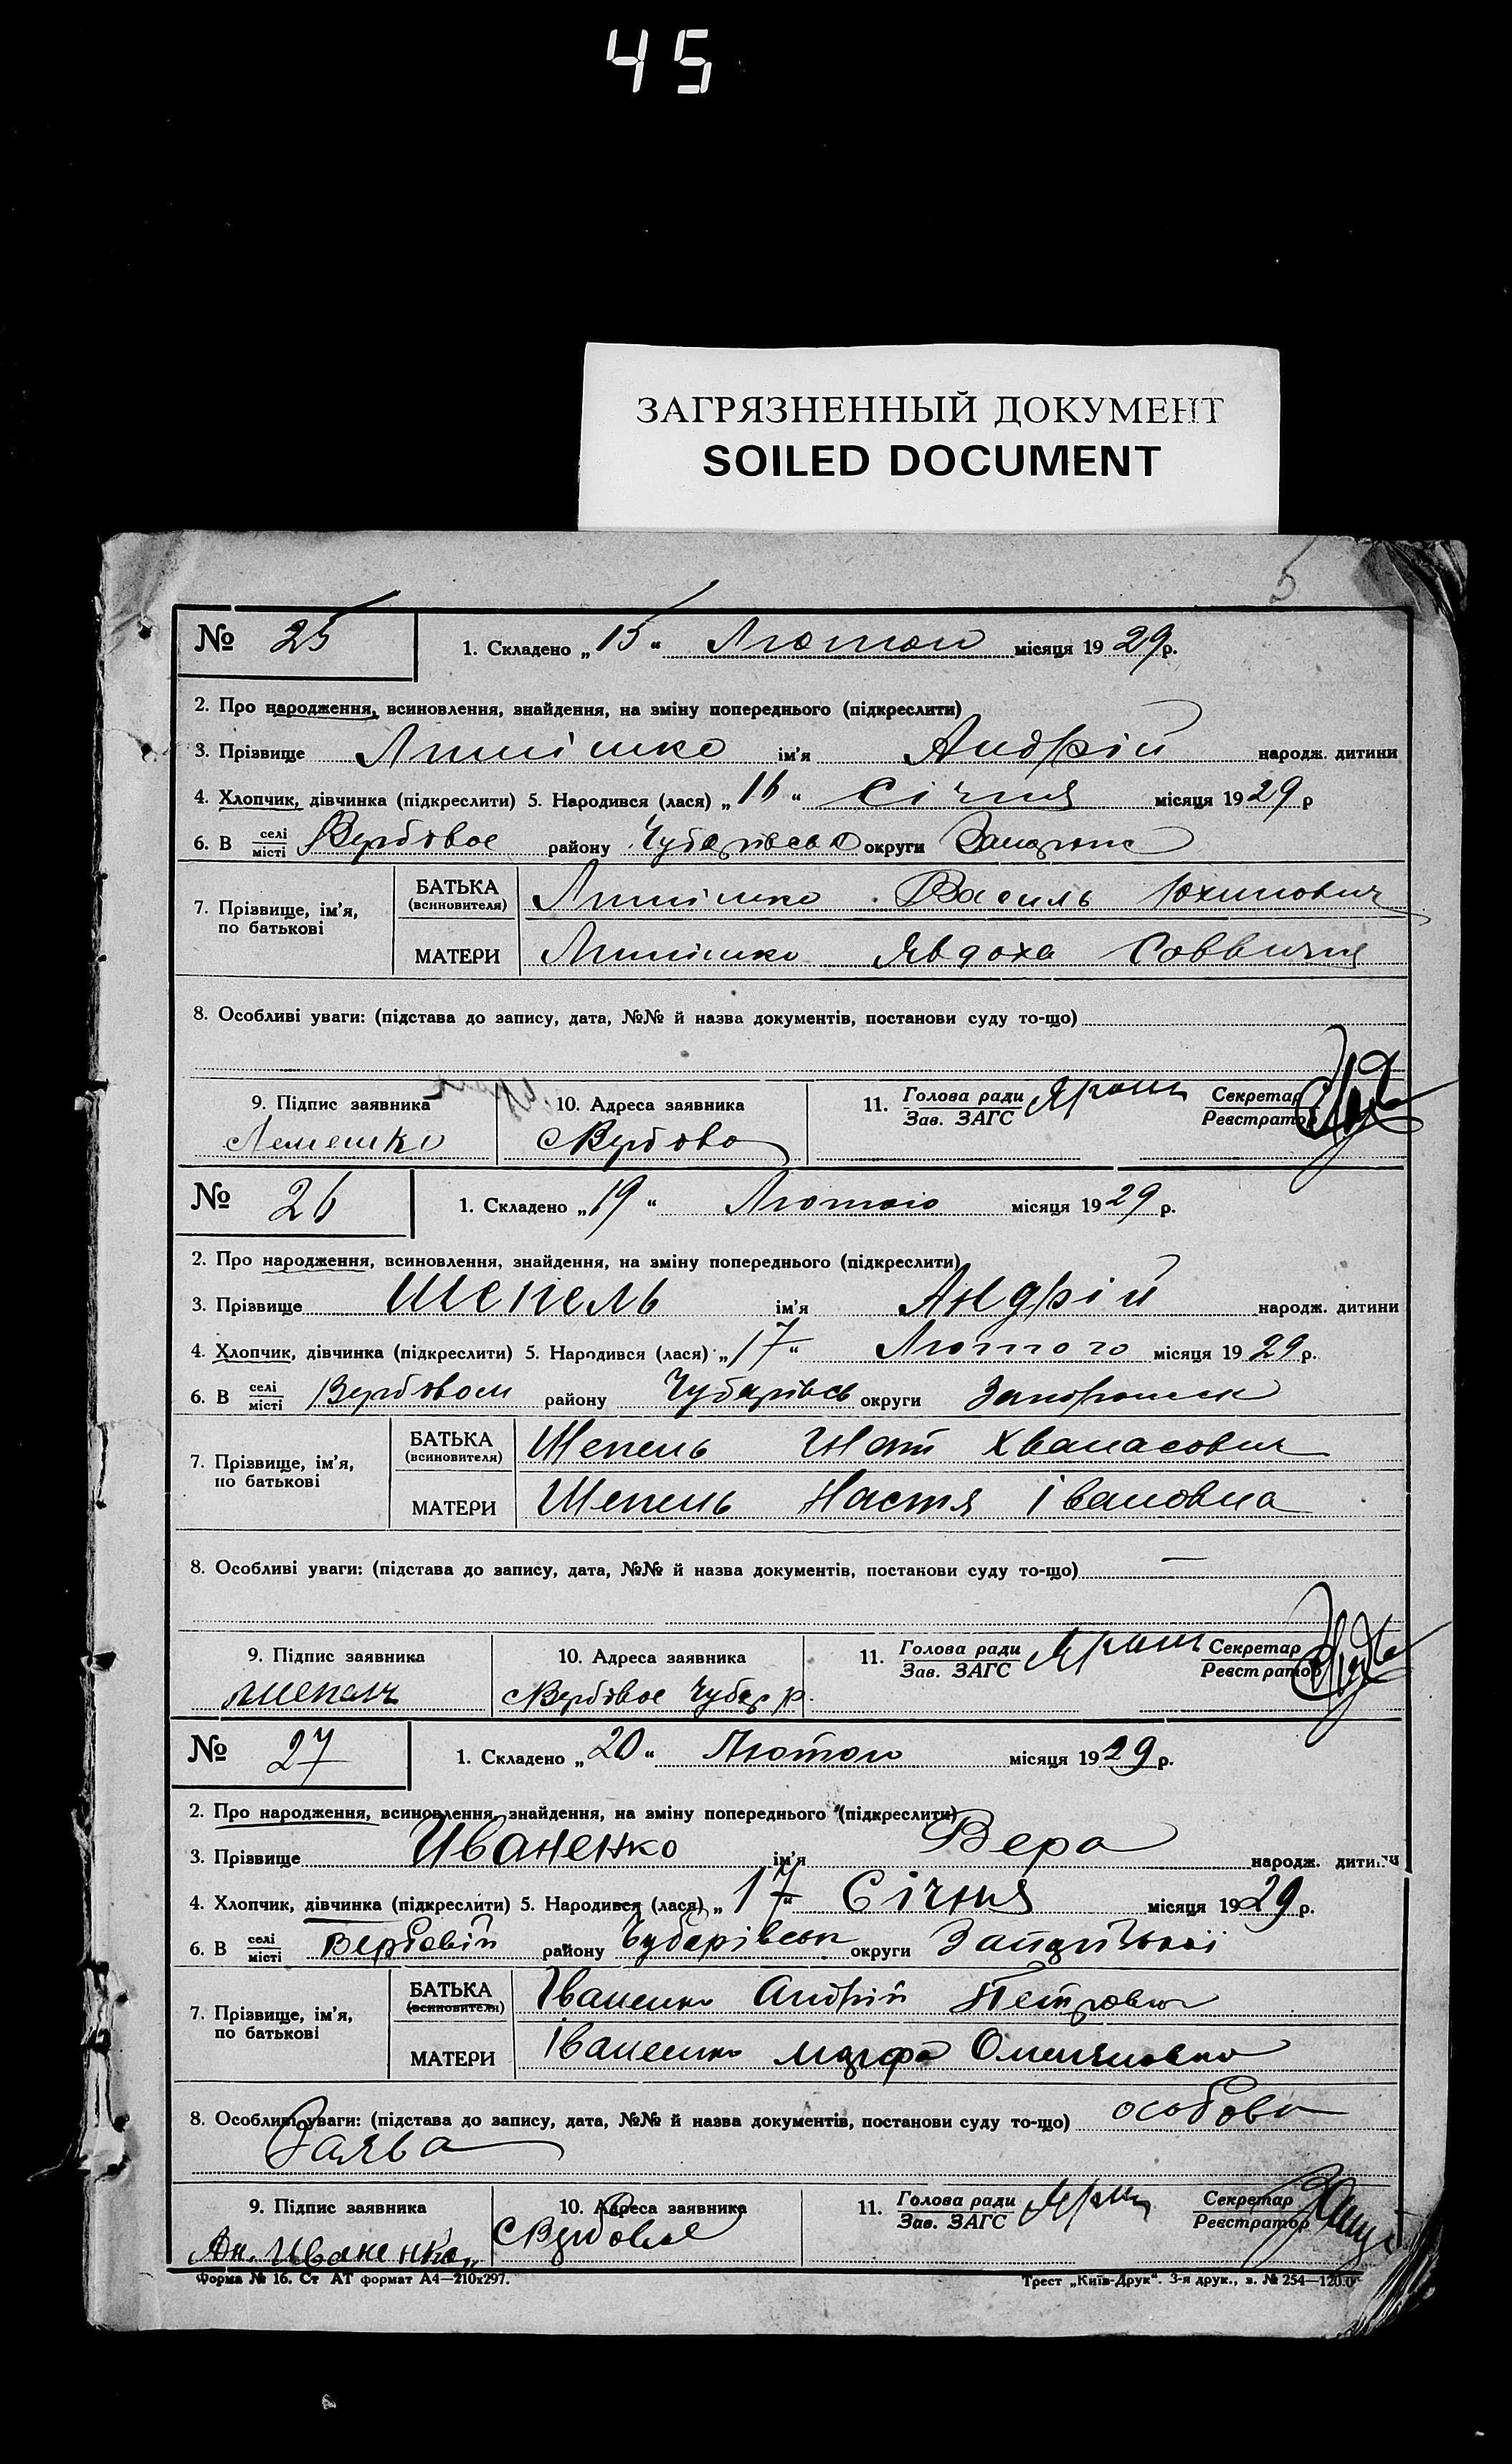 45
ЗАГРЯЗНЕННЫЙ ДОКУМЕНТ
SOILED DOCUMENT
5
№ 25 1. Складено „15“ Лютого місяця 1929р.
2. Про народження, всиновлення, знайдення, на зміну попереднього (підкреслити)
3. Прізвище ім'я Андрій народж. дитини
4. Хлопчик, дівчинка (підкреслити) 5. Народився (лася) „16“ Січня місяця 1929 р
6. В селі місті Вербовое району Чубарівськ округи
7. Прізвище, ім'я, по батькові БАТЬКА (всиновителя) Василь Юхимович
МАТЕРИ Явдоха Саввична
8. Особливі уваги: (підстава до запису, дата, №№ й назва документів, постанови суду то-що)
9. Підпис заявника 10. Адреса заявника 11. Голова ради Зав. ЗАГС Секретар Реєстратор
Лемешко с Вербово
№ 26 1. Складено „19“ Лютого місяця 1929 р.
2. Про народження, всиновлення, знайдення, на зміну попереднього (підкреслити)
3. Прізвище Шепель ім'я Андрій народж. дитини
4. Хлопчик, дівчинка (підкреслити) 5. Народився (лася) „17“ Лютого місяця 1929р.
6. В селі місті Вербовом району Чубарівсь округи
7. Прізвище, ім'я, по батькові БАТЬКА (всиновителя) Шепель Гнат Хванасович
МАТЕРИ Шепель Настя Івановна
8. Особливі уваги: (підстава до запису, дата, №№ й назва документів, постанови суду то-що) —
9. Підпис заявника 10. Адреса заявника 11. Голова ради Зав. ЗАГС Секретар Реєстратор
с Вербовое Чубар р.
№ 27 1. Складено „20“ Лютого місяця 1929р.
2. Про народження, всиновлення, знайдення, на зміну попереднього (підкреслити)
3. Прізвище Иваненко ім'я Вера народж. дитини
4. Хлопчик, дівчинка (підкреслити) 5. Народився (лася) „17“ Січня місяця 1929р.
6. В селі місті Вербовій району Чубарівськ округи
7. Прізвище, ім'я, по батькові БАТЬКА (всиновителя) Іваненко Андрій Петрович
МАТЕРИ Іваненко Марфа
8. Особливі уваги: (підстава до запису, дата, №№ й назва документів, постанови суду то-що) особова
Заява
9. Підпис заявника 10. Адреса заявника 11. Голова ради Зав. ЗАГС Секретар Реєстратор
Ан. Иваненко с Вербовое
Форма № 16. Ст АТ формат А4—210х297. Трест „Київ-Друк“. 3-я друк., з. № 254—120.0